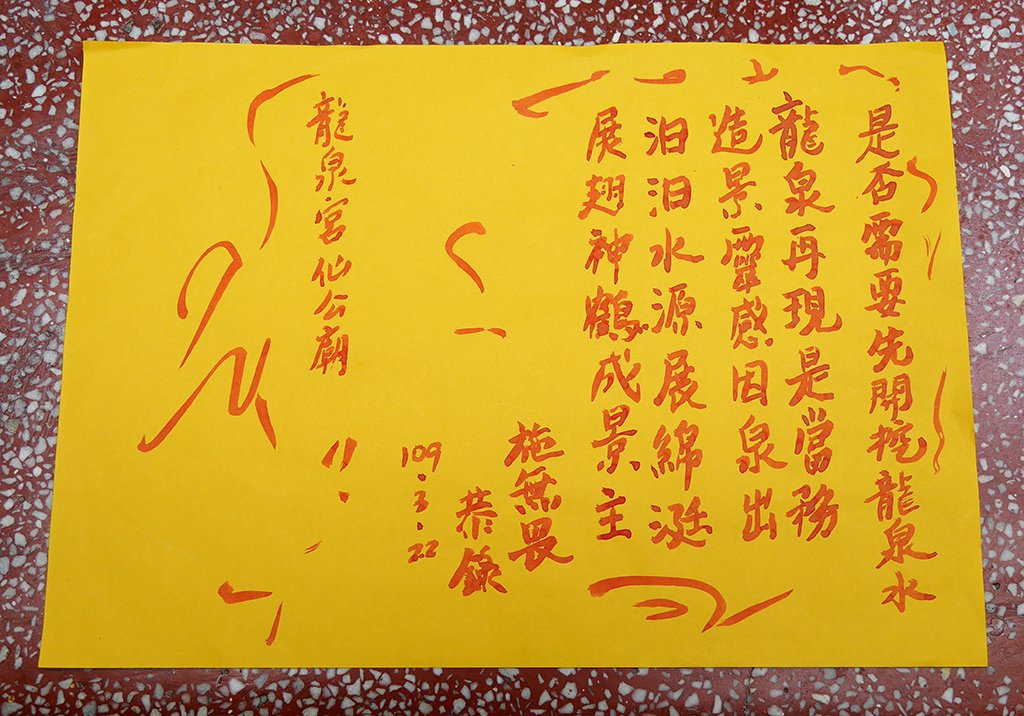 是否需要先開挖龍泉水
龍泉再現是當務
造景靈感因泉出
汩汩水源展綿涎
展翅神鶴成景主
施無畏
恭錄
109.3.22
龍泉宮仙公廟